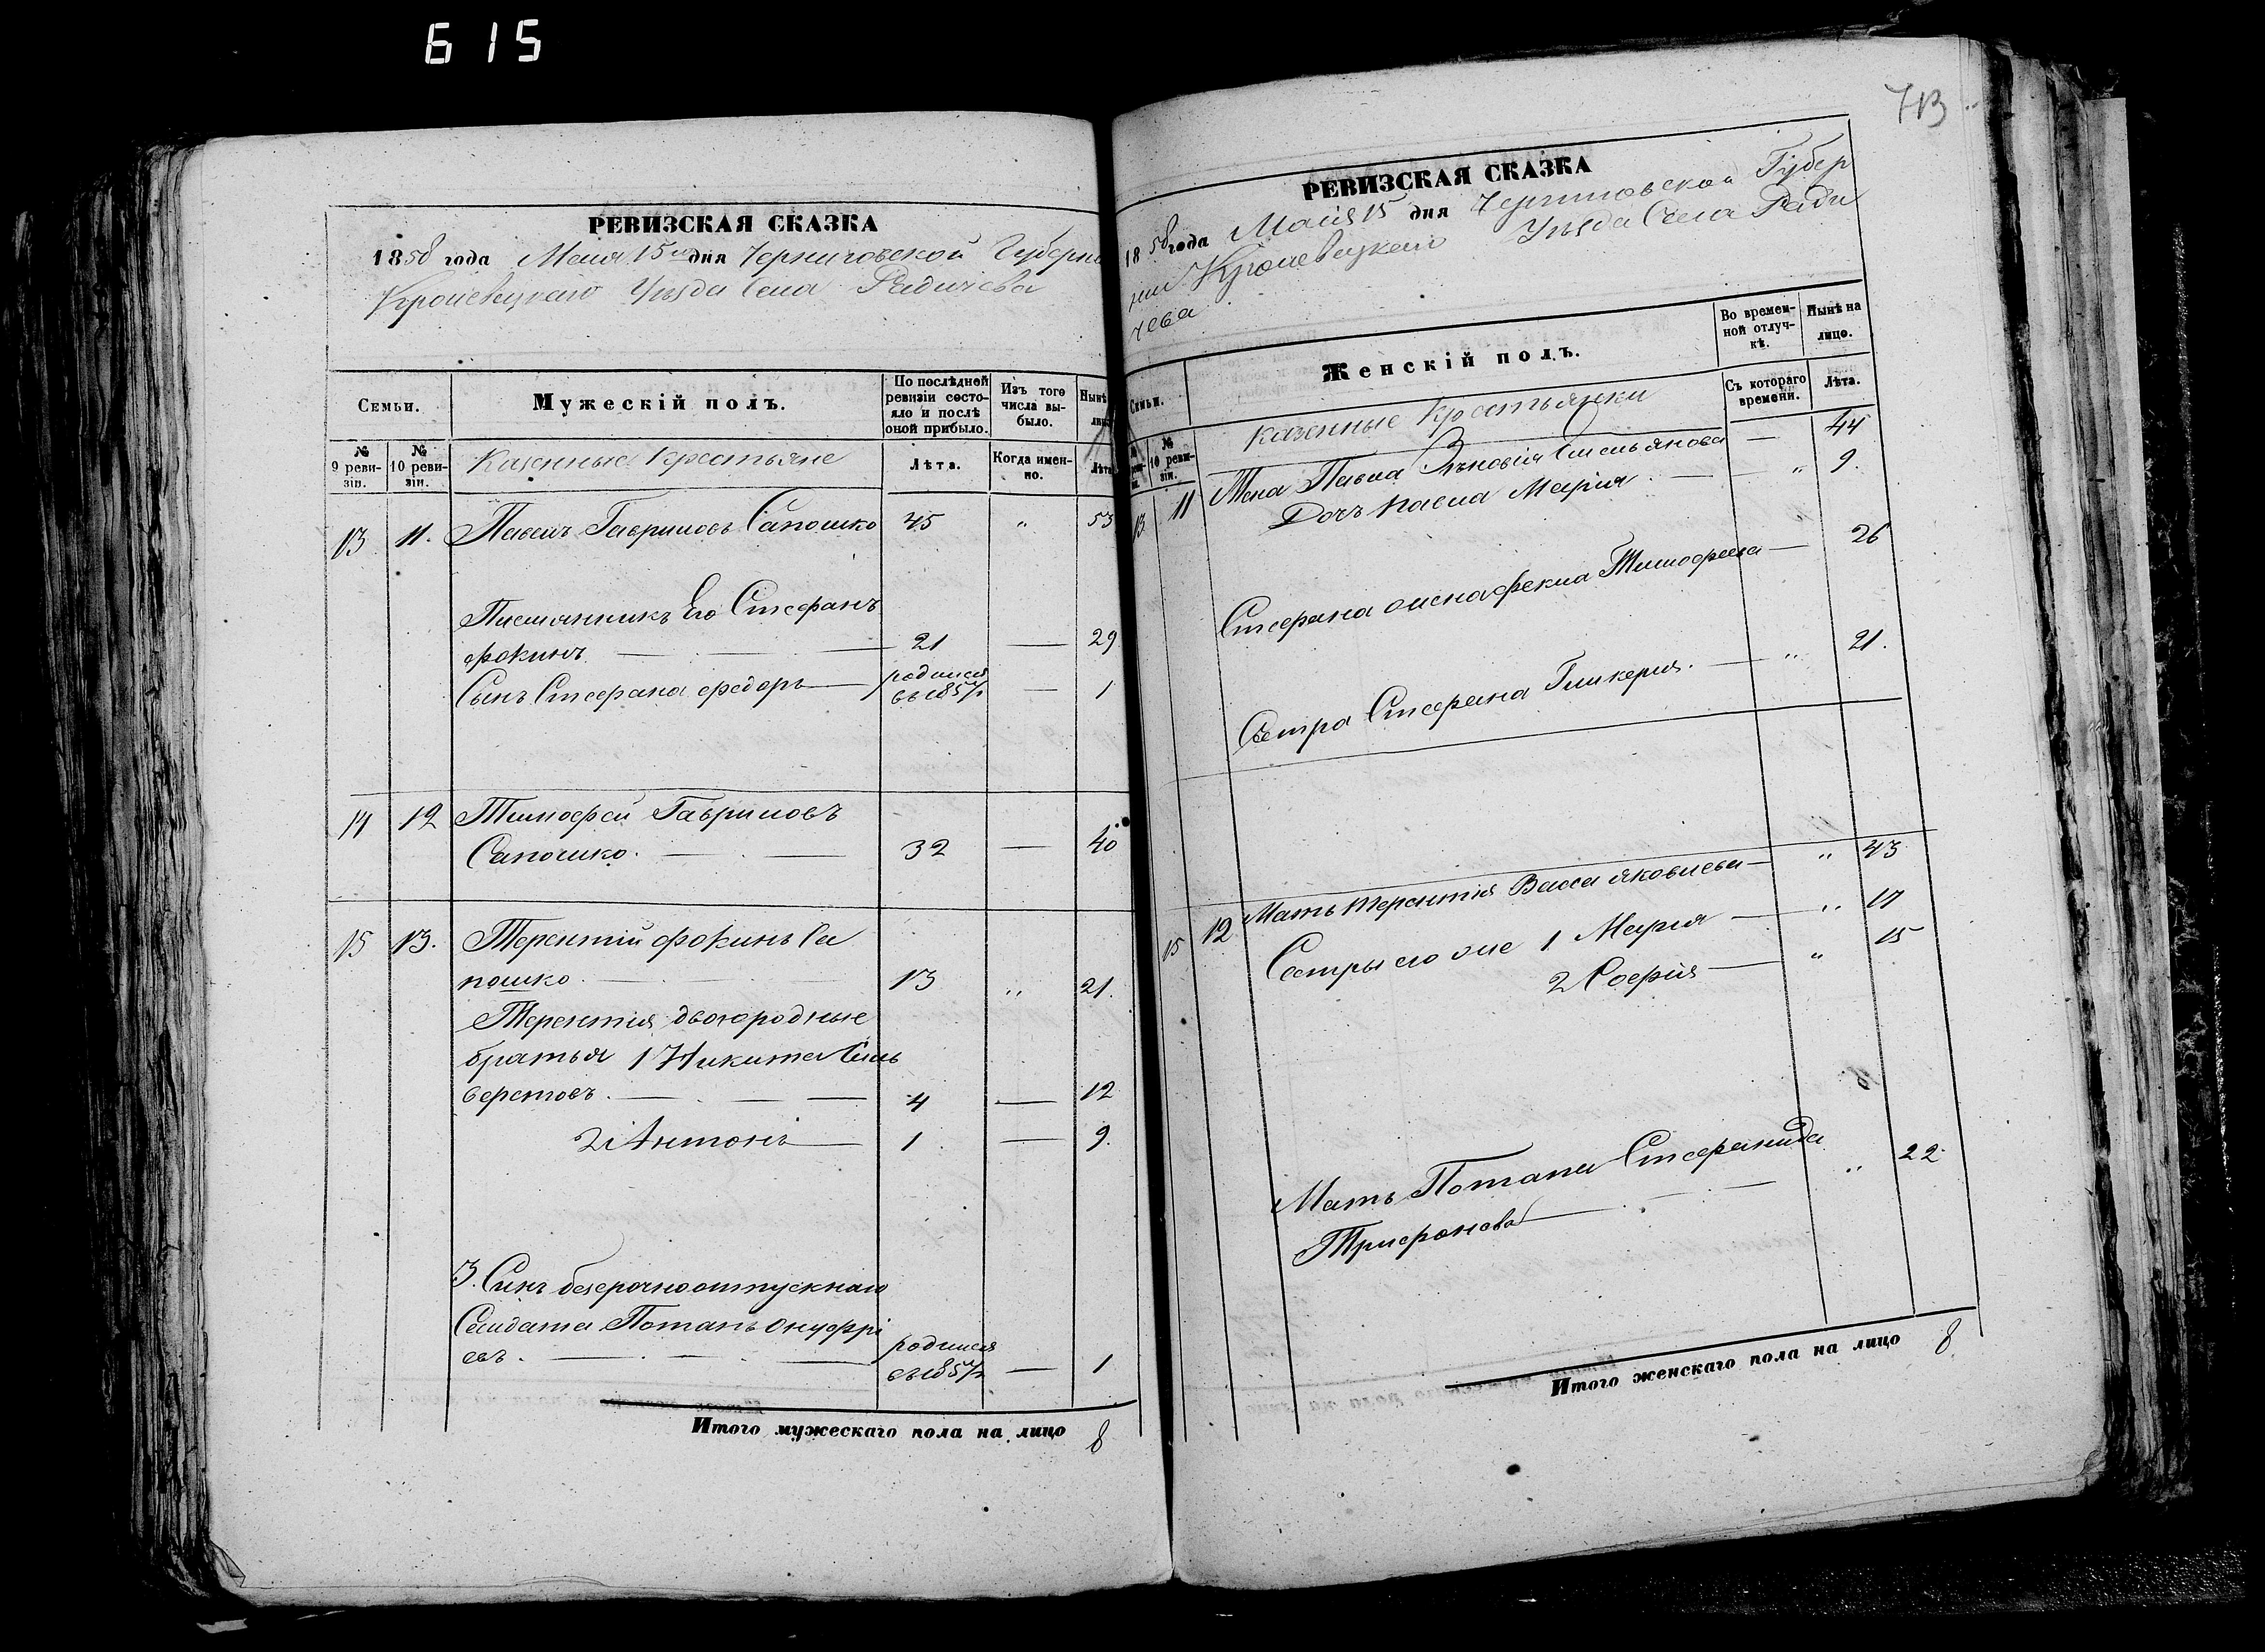 615
РЕВИЗСКАЯ СКАЗКА
1858 года Маия 15го дня Черниговской Губерн
Кролевецкаго Уѣзда Села Радичева
Семьи.
Мужескій полъ.
По послѣдней ревизіи состояло и послѣ оной прибыло.
Изъ того числа выбыло.
Нынѣ
№ 9 ревизіи.
№ 10 ревизіи.
Казенные Крестьяне
Лѣта.
Когда именно.
Лѣта
13 11. Павелъ Гавриловъ Сапошко 45 " 53
Племянникъ Его Стефанъ
Фокинъ 21 — 29
Сынъ Стефана Федоръ родился въ 1857/г — 1
14 12 Тимофей Гавриловъ
Сапошко. 32 — 40
15 13. Терентій Фокинъ Са
пошко 13 " 21.
Терентия двоюродные
братья 1 Никита Силь
верстовъ. 4 — 12
2 Антонъ 1 — 9.
3. Сынъ безсрочноотпускнаго
Салдата Потапъ Онуфрі
евъ. родился въ 1857/г — 1
Итого мужескаго пола на лицо 8
713
РЕВИЗСКАЯ СКАЗКА
1858 года Маия 15 дня Черниговской Губер
ніи Кролевецкаго Уѣзда Села Ради
чева
Семьи.
Женскій полъ.
Во временной отлучкѣ.
Нынѣ на лицо.
№ 10 ревизіи.
Казенные Крестьянки
Съ котораго времени.
Лѣта.
13 11 Жена Павла Зѣновія Емельянова — 44
Дочь Павла Марія — " 9.
Стефана жена Фекла Тимофеева — 26
Сестра Стефана Гликерия. — " 21.
15 12 Мать Терентия Васса Яковлева — " 43
Сестры его же 1 Мария — " 17
2 Софія — " 15
Мать Потапа Стефанида
Трифонова — " 22
Итого женскаго пола на лицо 8